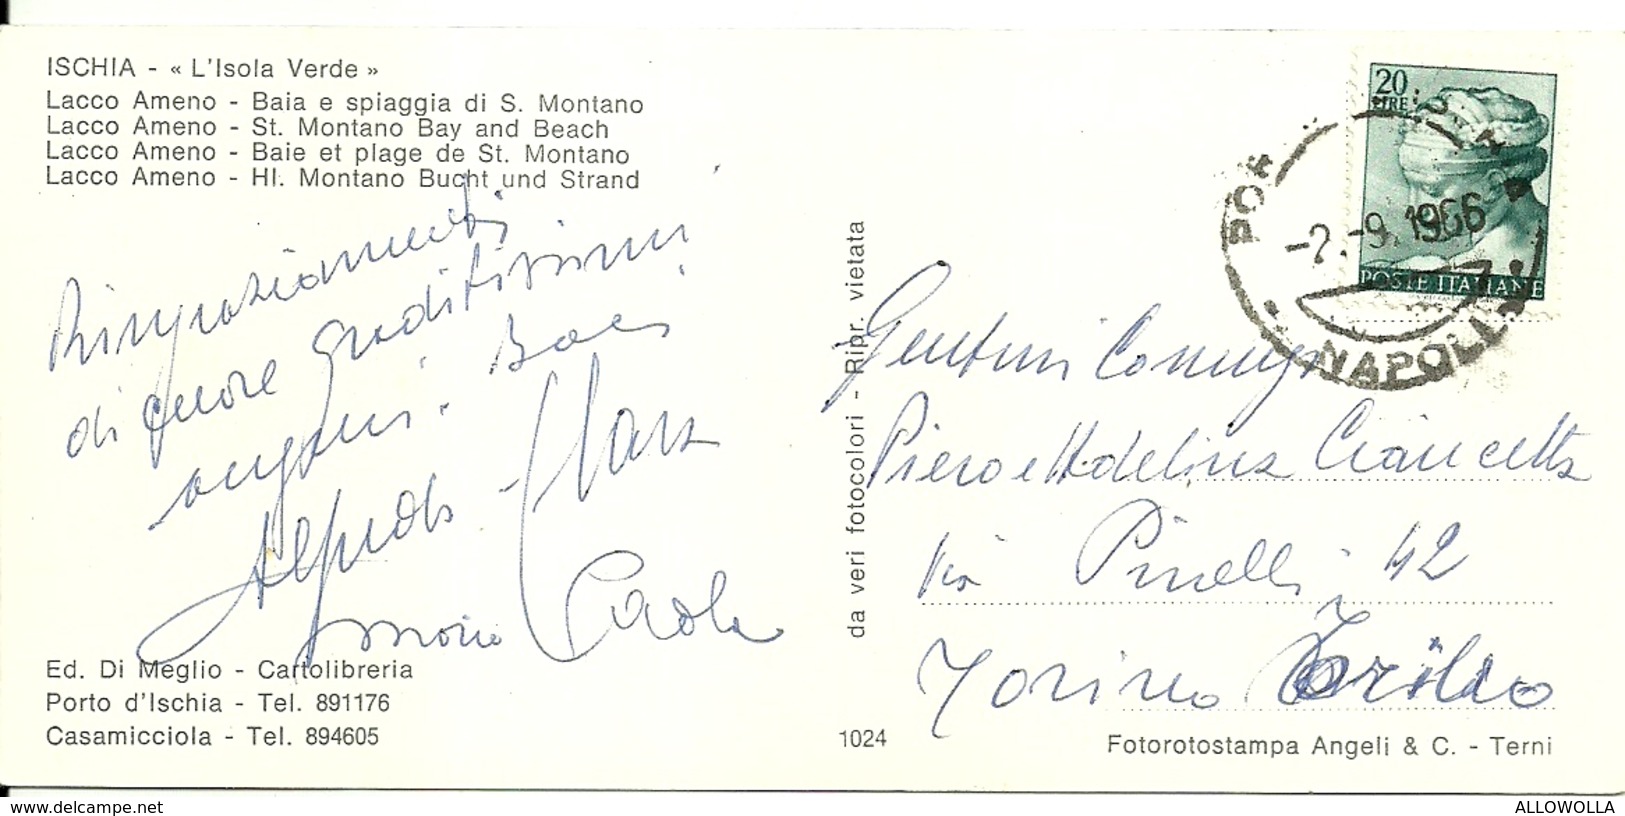 ISCHIA - « L'Isola Verde »
Lacco Ameno - Baia e spiaggia di S. Montano
Lacco Ameno - St. Montano Bay and Beach
Lacco Ameno - Baie et plage de St. Montano
Lacco Ameno - Hl. Montano Bucht und Strand
Ringraziamenti
di cuore graditissimi
auguri. Baci
Alfredo - Clara
Paola
Ed. Di Meglio - Cartolibreria
Porto d'Ischia - Tel. 891176
Casamicciola - Tel. 894605
da veri fotocolori - Ripr. vietata
1024
20
LIRE
POSTE ITALIANE
-2.-9.1966
NAPOLI
Gentmi Coniugi
Piero e Adelina Ciancetta
Via Pinelli 42
Torino
Fotorotostampa Angeli & C. - Terni
www.delcampe.net
ALLOWOLLA